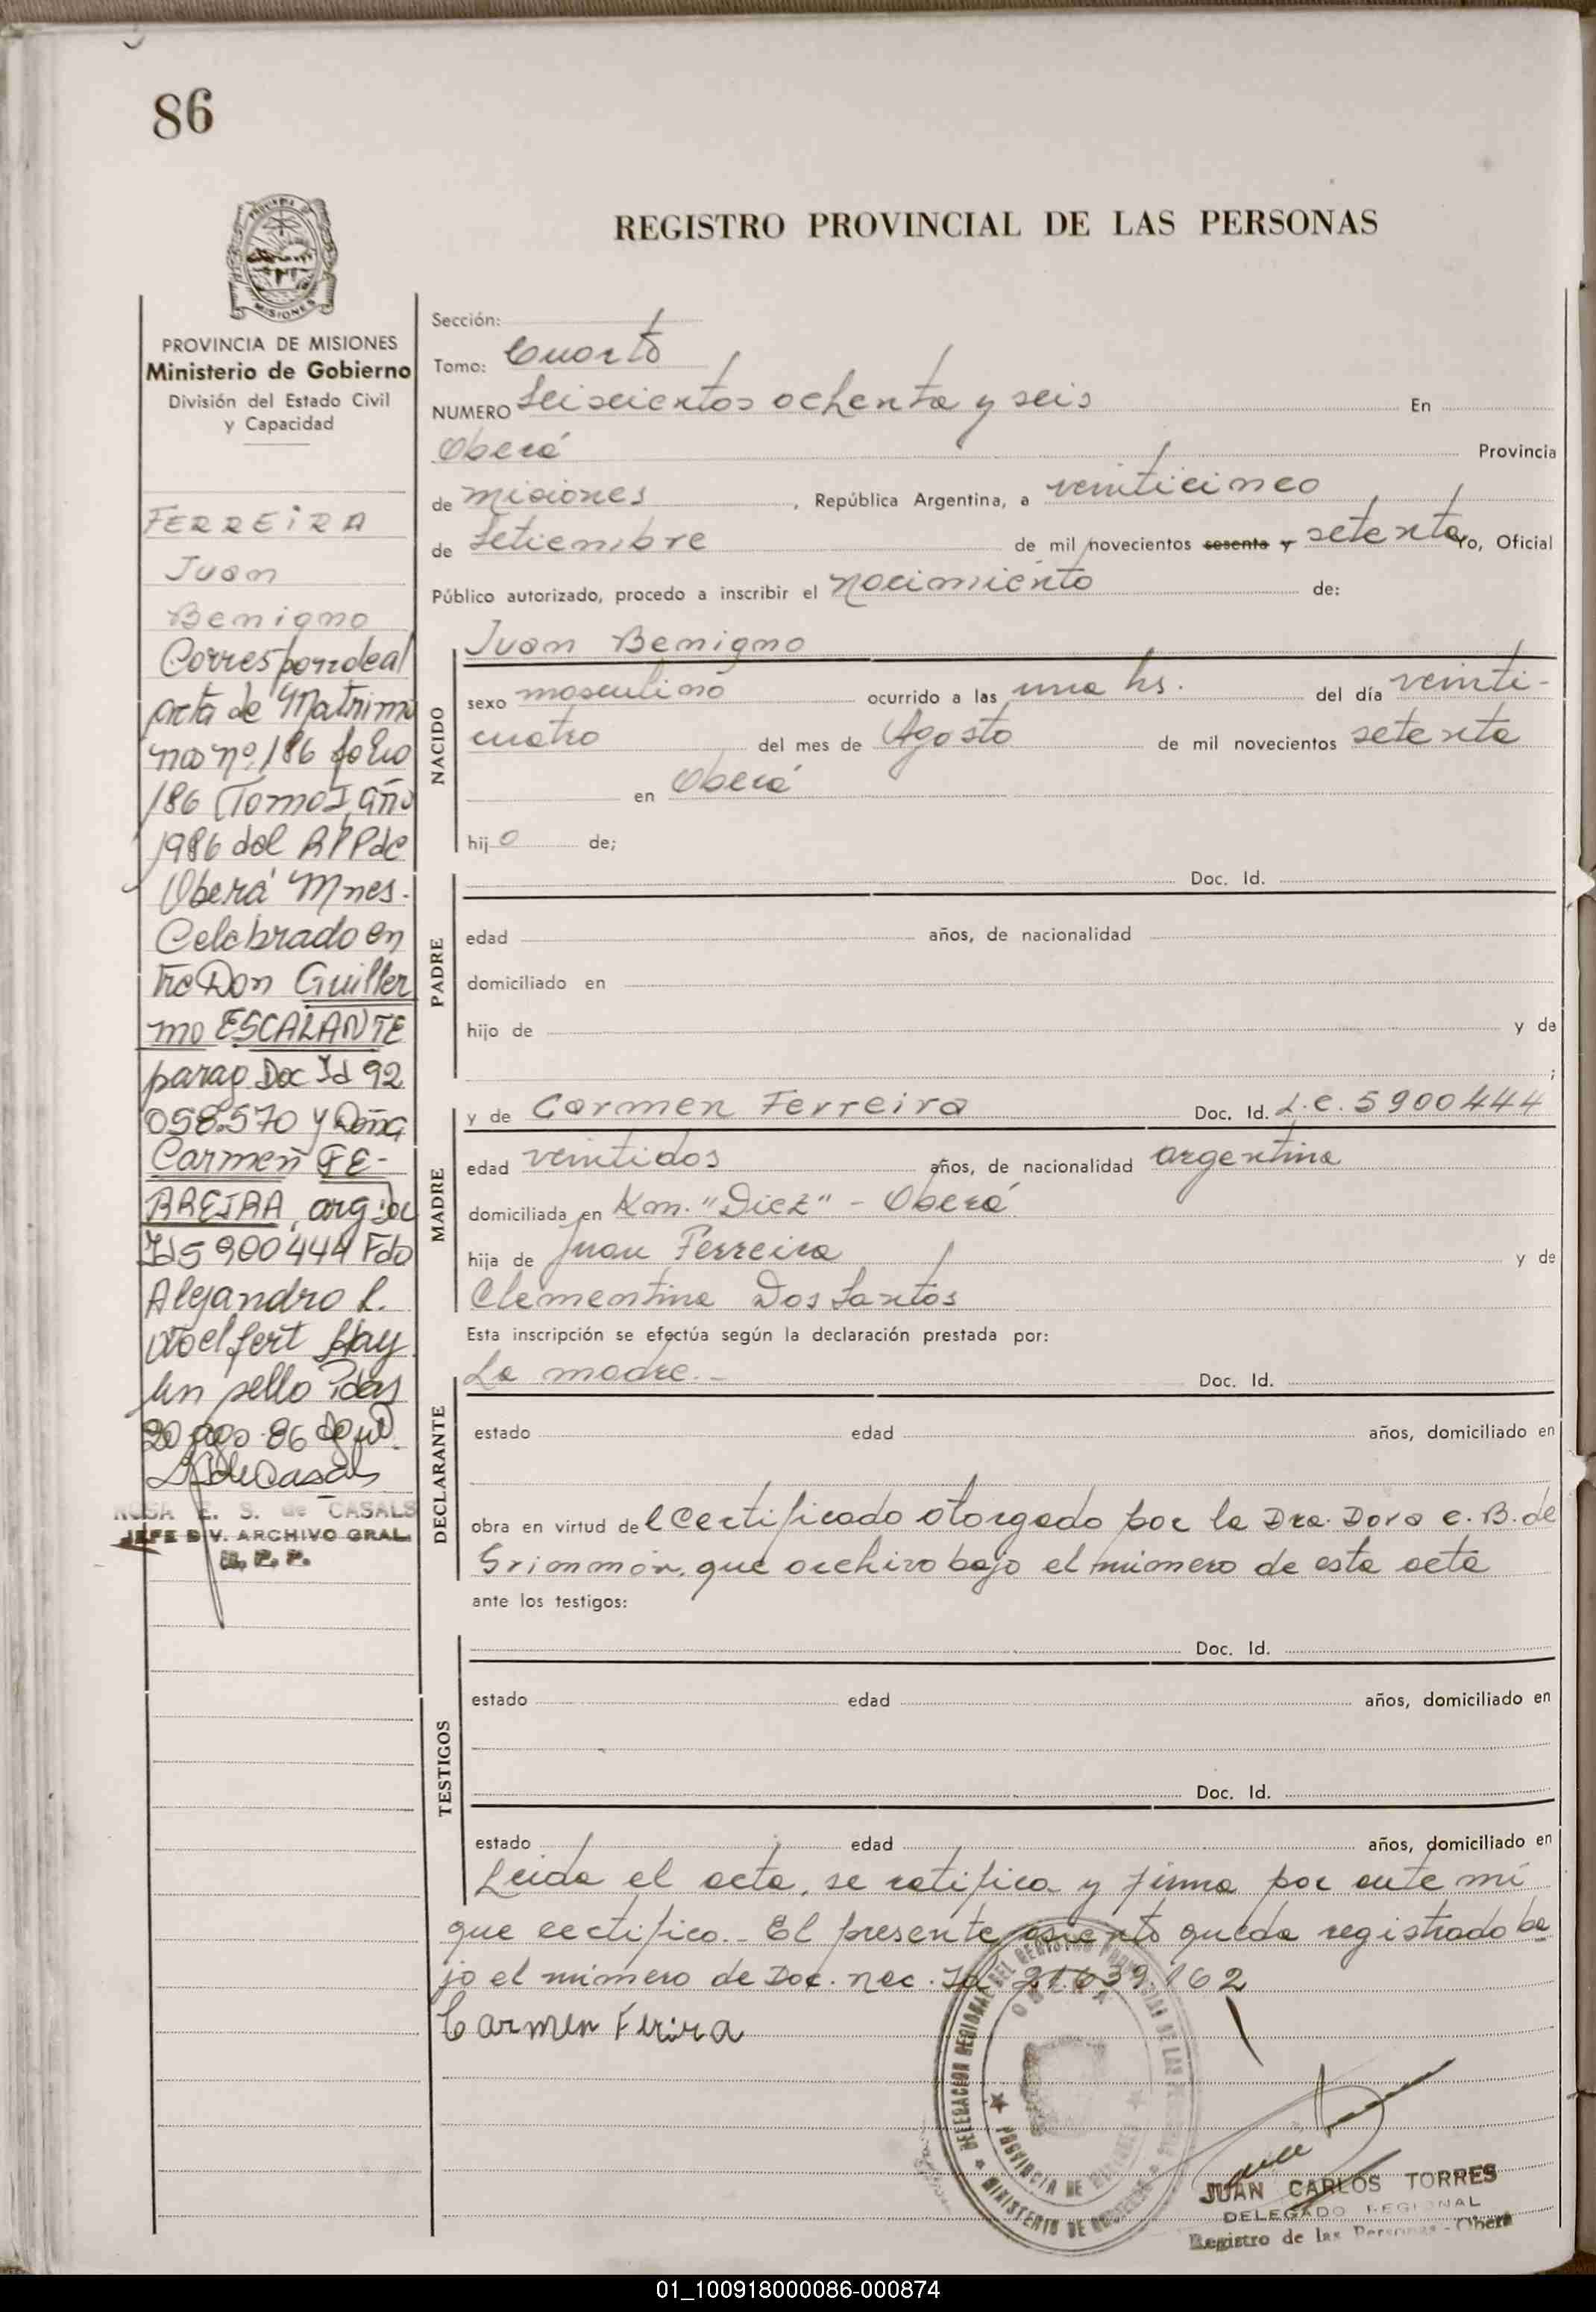 86
REGISTRO PROVINCIAL DE LAS PERSONAS
MISIONES
PROVINCIA DE MISIONES
Ministerio de Gobierno
División del Estado Civil
y Capacidad
FERREIRA
Juan
Benigno
Corresponde al
acta de Matrimo
nio nº 186 folio
186 Tomo I año
1986 del RPP de
Oberá Mnes.
Celebrado en
tre Don Guiller
mo ESCALANTE
parag Doc Id 92
058.570 y Doña
Carmen FE-
RREIRA, arg. Doc
Id 5900444 Fdo
Alejandro L.
Hay
un sello Pdas
20 ago 86
ROSA E. S. de CASALS
JEFE DIV. ARCHIVO GRAL.
R. P. P.
Sección:
Tomo: Cuarto
NUMERO Seiscientos ochenta y seis En
Oberá Provincia
de Misiones, República Argentina, a veinticinco
de Setiembre de mil novecientos sesenta y setenta Yo, Oficial
Público autorizado, procedo a inscribir el nacimiento de:
NACIDO
Juan Benigno
sexo masculino ocurrido a las una hs. del día veinti-
cuatro del mes de Agosto de mil novecientos setenta
en Oberá
hijo de;
PADRE
Doc. Id.
edad años, de nacionalidad
domiciliado en
hijo de y de
;
MADRE
y de Carmen Ferreira Doc. Id. L.C. 5900444
edad veintidos años, de nacionalidad argentina
domiciliada en Km. "Diez" - Oberá
hija de Juan Ferreira y de
Clementina Dos Santos
Esta inscripción se efectúa según la declaración prestada por:
DECLARANTE
La madre.- Doc. Id.
estado edad años, domiciliado en
obra en virtud del certificado otorgado por la Dra. Dora C. B. de
Grimmón, que archivo bajo el número de esta acta
ante los testigos:
TESTIGOS
Doc. Id.
estado edad años, domiciliado en
Doc. Id.
estado edad años, domiciliado en
Leida el acta, se ratifica y firma por ante mí
que certifico.- El presente asiento queda registrado ba
jo el número de Doc. nac. Id 21.639.162
Carmen Ferira
DELEGACION REGIONAL DEL REGISTRO PROVINCIAL DE LAS
MINISTERIO DE GOBIERNO
PROVINCIA DE MISIONES
JUAN CARLOS TORRES
DELEGADO REGIONAL
Registro de las Personas - Oberá
01_100918000086-000874